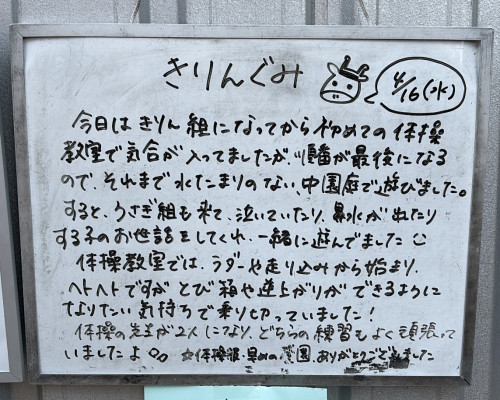 きりんぐみ
4/16(水)
今日はきりん組になってから初めての体操
教室で気合が入ってましたが、順番が最後になる
ので、それまで水たまりのない、中園庭で遊びました。
すると、うさぎ組も来て、泣いていたり、鼻水がたれたり
する子のお世話をしてくれ、一緒に遊んでました
体操教室では、ラダーや走り込みから始まり、
ヘトヘトですがとび箱や逆上がりができるように
なりたい気持ちで乗り切っていました!
体操の先生が2人になり、どちらの練習もよく頑張って
いましたよ。。 ☆体操服、早めの登園、ありがとうございました